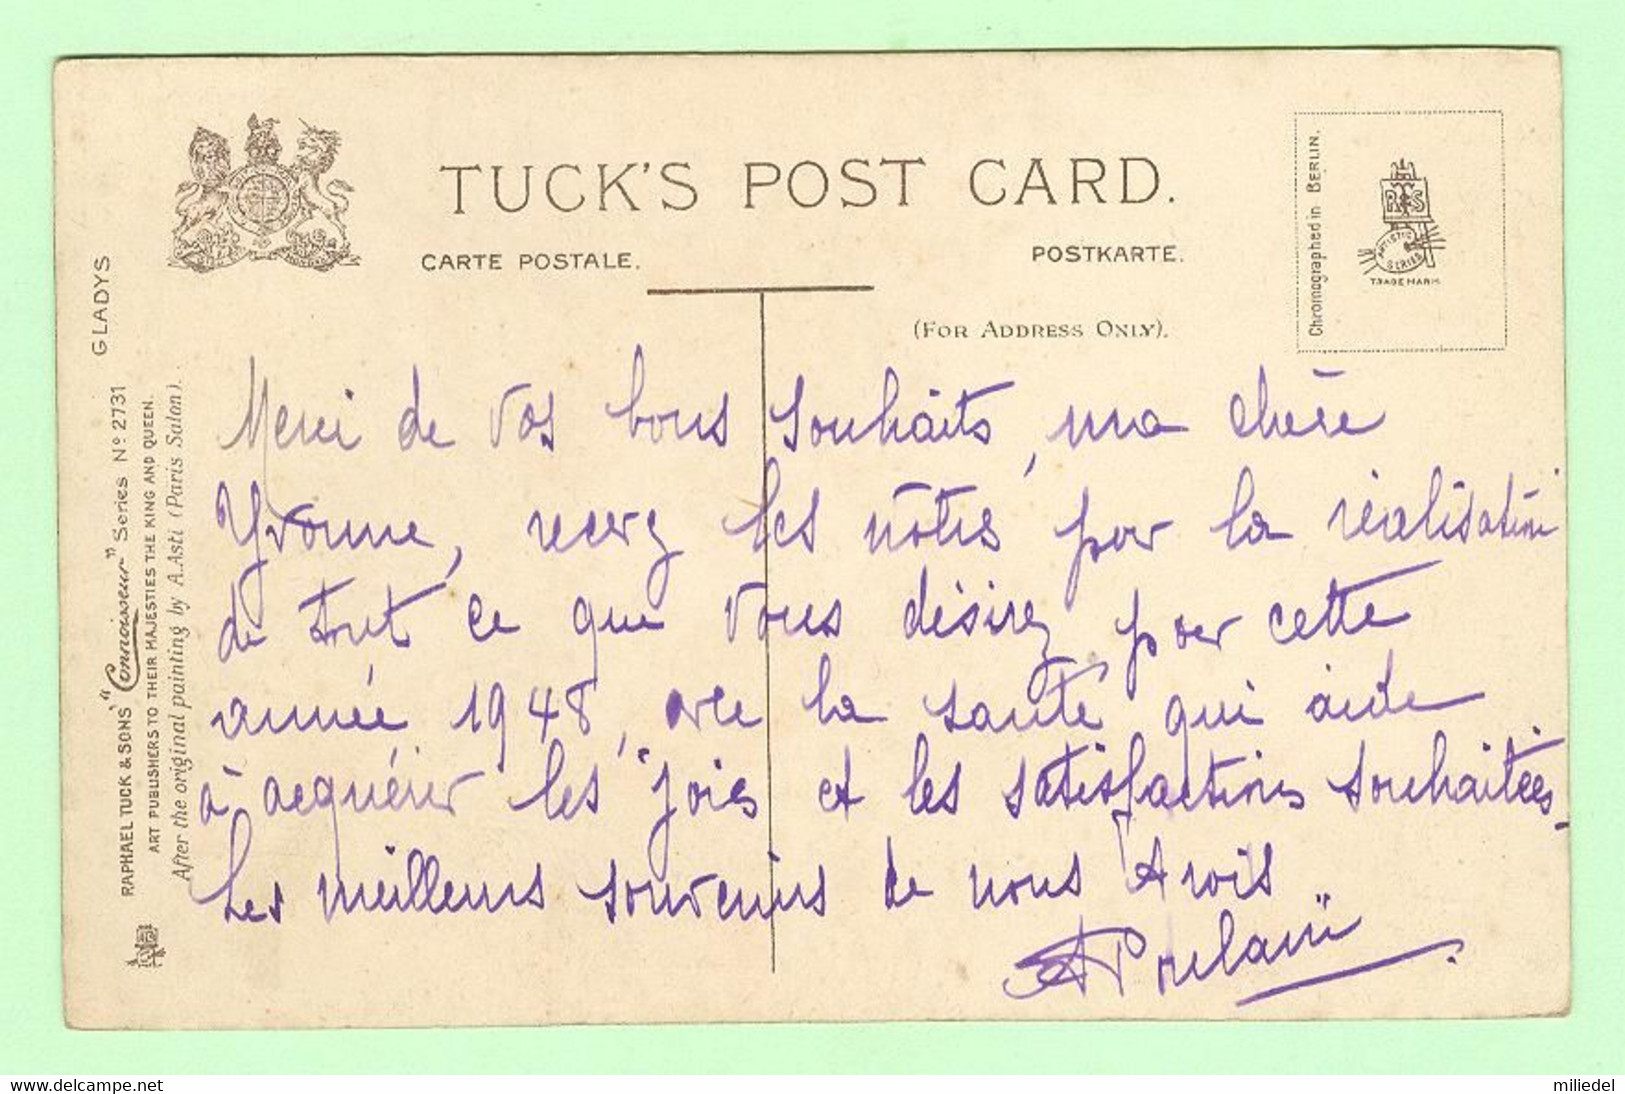 TUCK'S POST CARD.
CARTE POSTALE.
POSTKARTE.
(FOR ADDRESS ONLY).
Chromographed in BERLIN.
R T S
ARTISTIC
SERIES
TRADE MARK
GLADYS
RAPHAEL TUCK & SONS' "Connoisseur" Series Nº 2731
ART PUBLISHERS TO THEIR MAJESTIES THE KING AND QUEEN.
After the original painting by A.Asti (Paris Salon).
Merci de vos bons souhaits, ma chère
Yvonne, recevez les nôtres pour la réalisation
de tout ce que vous désirez pour cette
année 1948, avec la santé qui aide
à acquérir les joies et les satisfactions souhaitées.
Les meilleurs souvenirs de nous trois
A Poulain
www.delcampe.net
miliedel